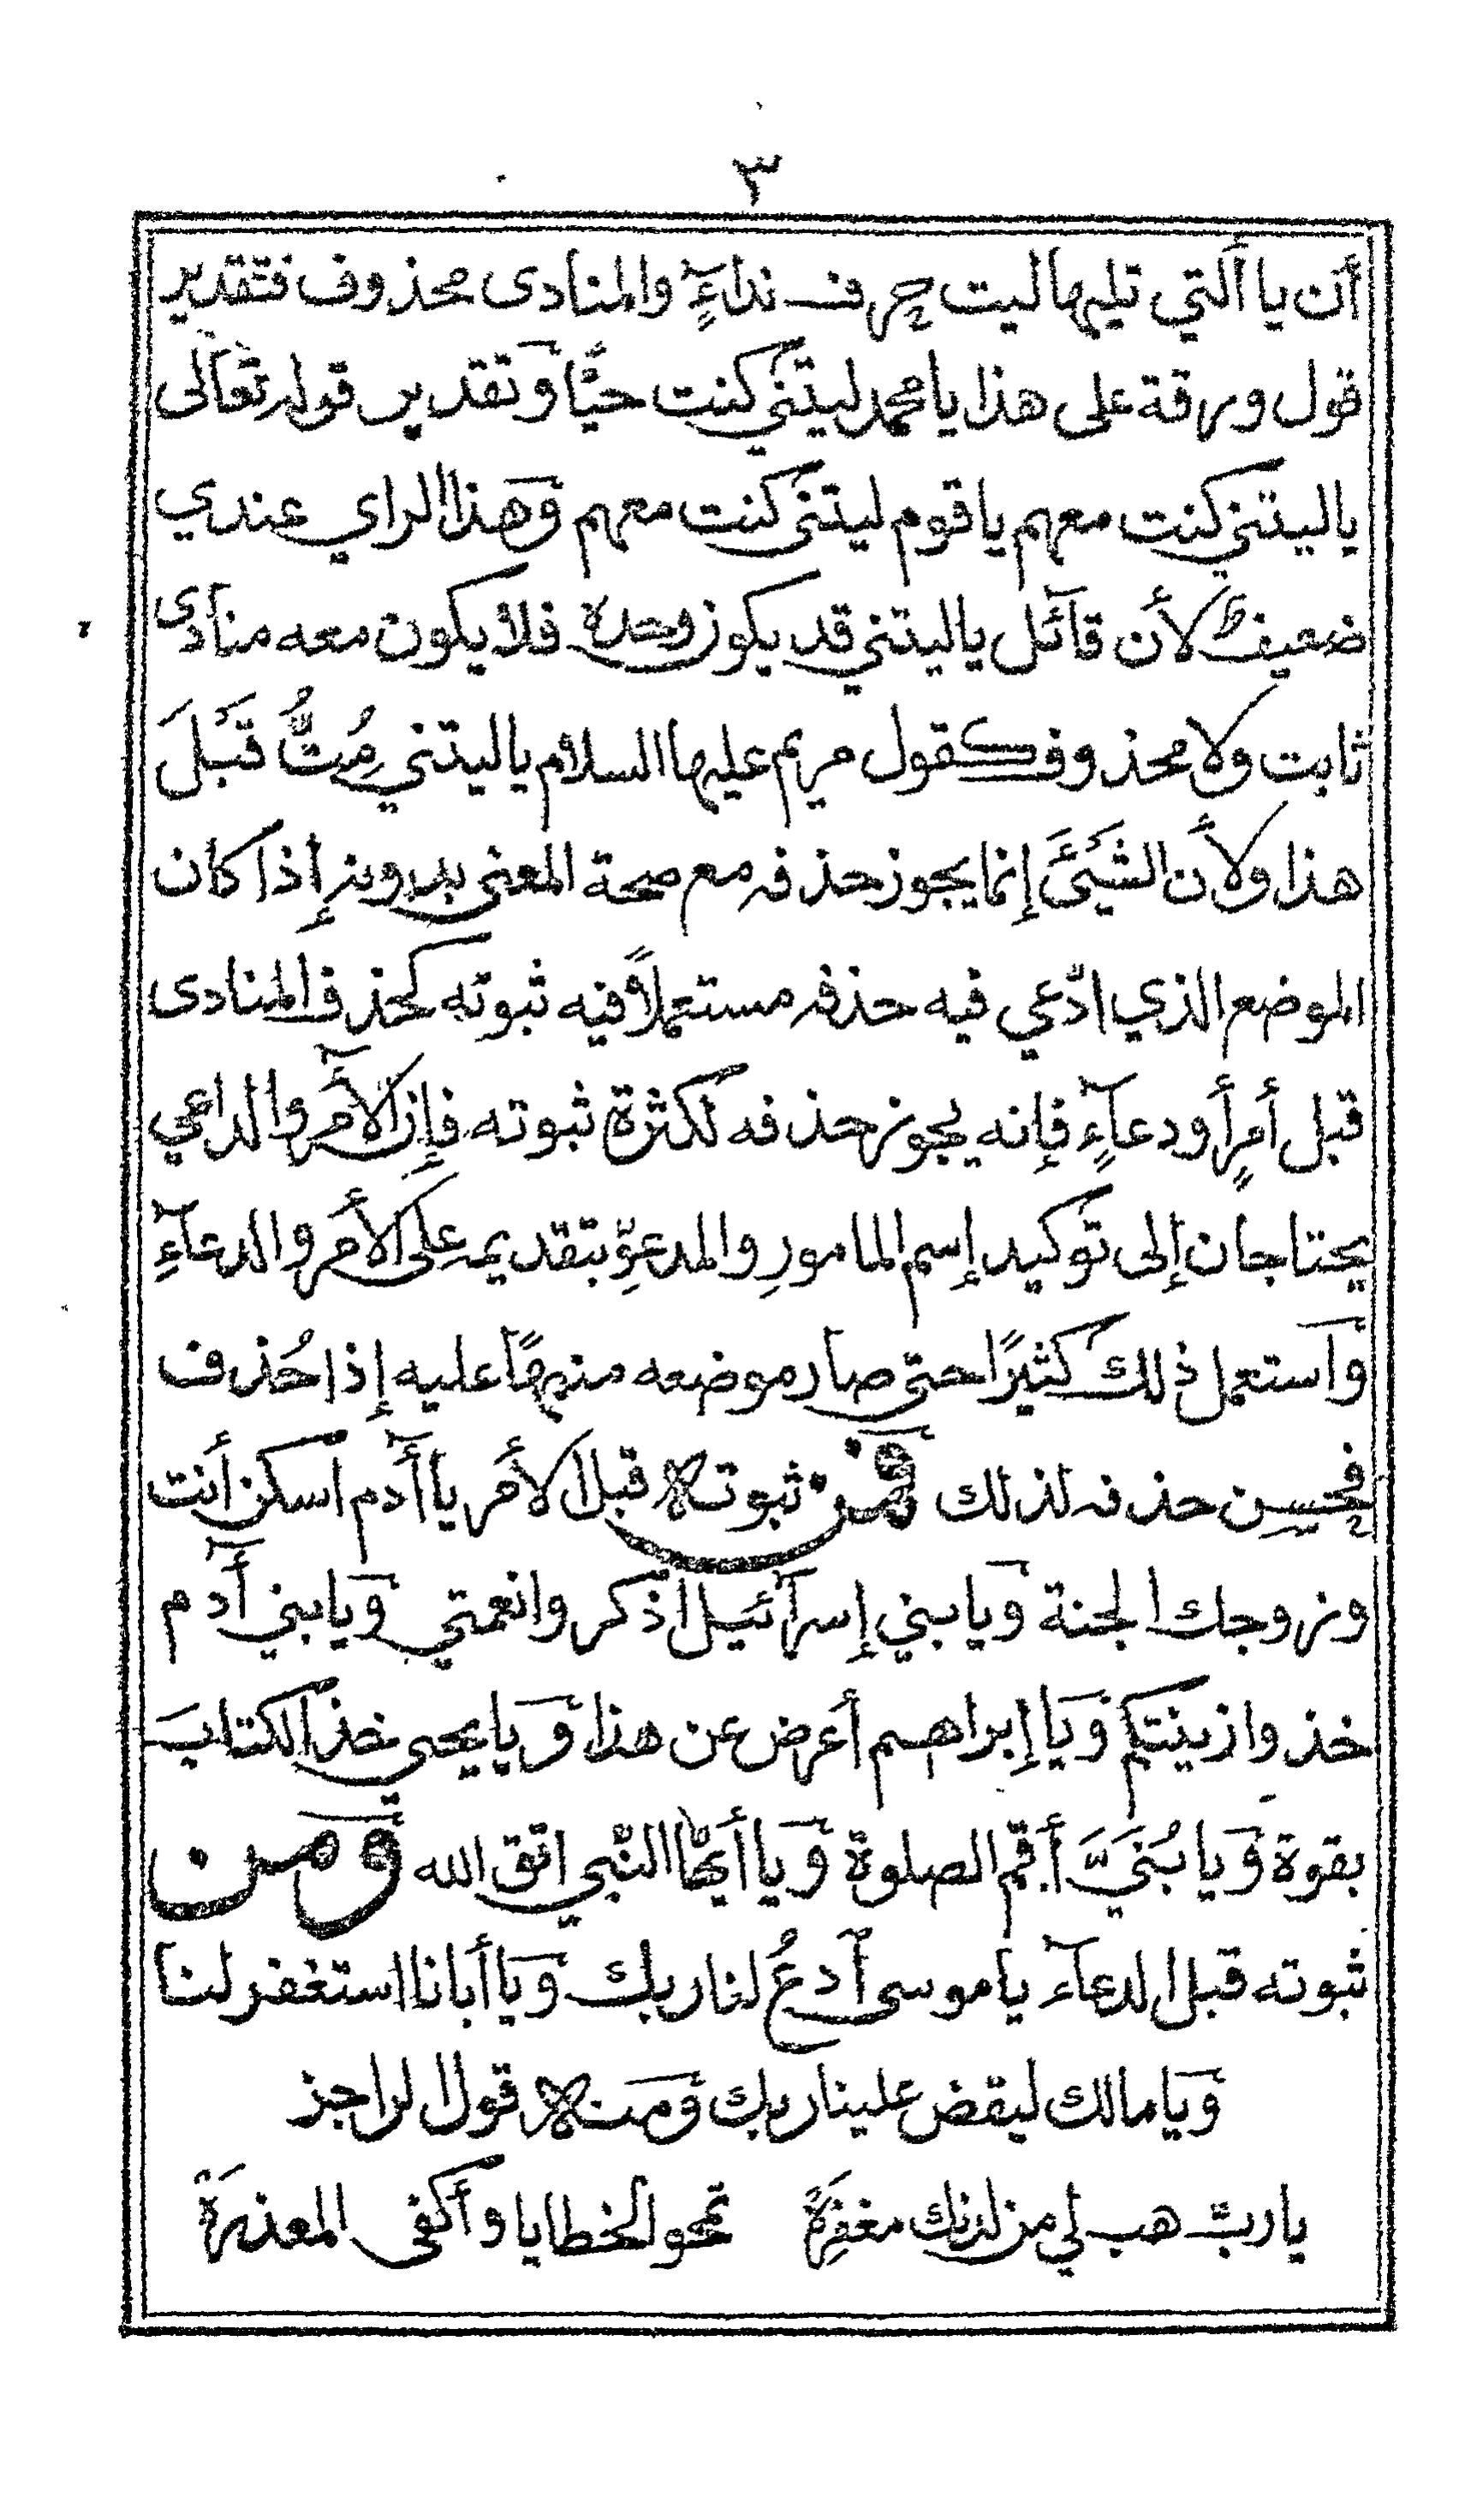 ٣
أن يا ألتي تليها ليت حرف نداءٍ والمنادى محذوف فتقدير
قول ورقة على هذا يا محمد ليتني كنت حيًّا وتقدير قوله تعالى
يا ليتني كنت معهم يا قوم ليتنى كنت معهم وهذا الراي عندي
ضعيف لأن قائل يا ليتني قد يكون وحده فلا يكون معه منادى
ثابت ولا محذوف كقول مريم عليها السلام يا ليتني مِتُّ قَبْلَ
هذا ولأن الشَيْئَ إنما يجوز حذفه مع صحة المعنى بدونه إذا كان
الموضع الذي ادّعي فيه حذفه مستعملًا فيه ثبوته كحذف المنادى
قبل أمرٍ أو دعآءٍ فإنه يجوز حذفه لكثرة ثبوته فإن الآمر والداعي
يحتاجان إلى توكيد إسم المامورِ والمدعوِّ بتقديمه على الأمر والدعآءِ
واستعمل ذلك كثيرًا حتى صار موضعه منبهًا عليه إذا حُذف
فحسن حذفه لذلك فمن ثبوته قبل الأمر يا أدم اسكن أنت
وزوجك الجنة ويا بني إسرآئيل اذكروا نعمتي ويا بني آدم
خذوا زينتكم ويا إبراهيم أعرض عن هذا ويا يحيى خذ الكتابَ
بقوة ويا بُنَيَّ أقم الصلوة ويا أيها النّبي اتق الله ومن
ثبوته قبل الدعآء يا موسى آدعُ لنا ربك ويا أبانا استغفر لنا
ويا مالك ليقض علينا ربك ومنه قول الراجز
يا ربّ هب لي من لدنك مغفِرَةً تمحو الخطايا وأكفى المعذرَةْ